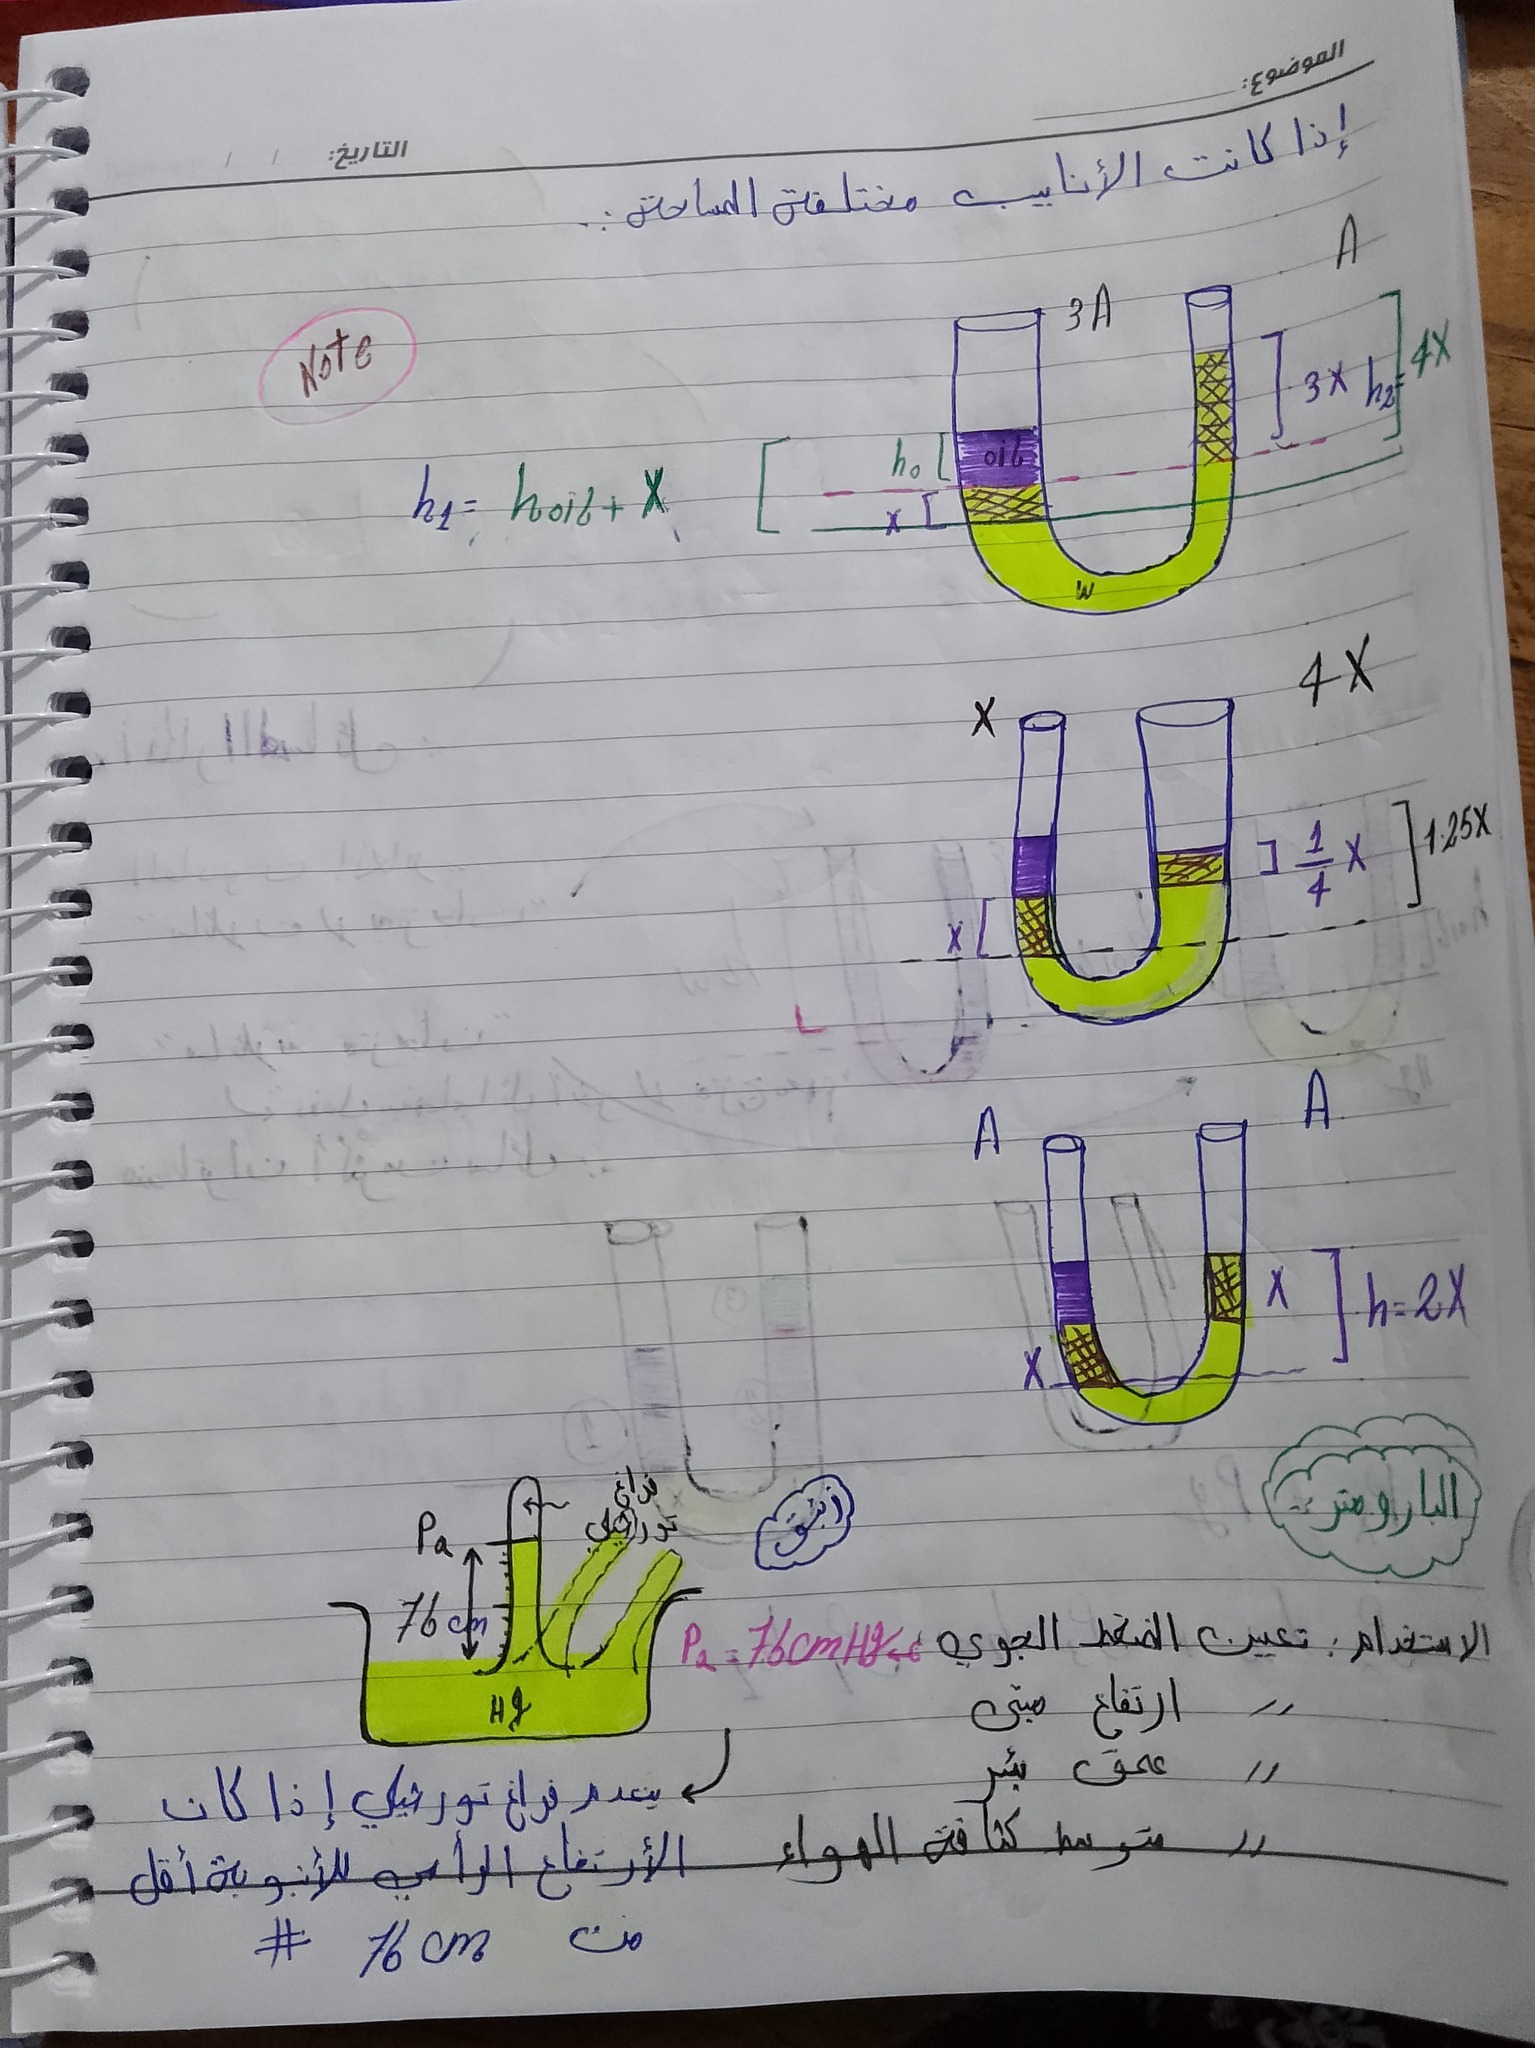 الموضوع:
التاريخ: / /
إذا كانت الأنابيب مختلفة المساحة :.
Note
3A
A
3X
h2=4X
h0
oil
X
h1 = hoil + X
W
X
4X
X
1/4 X
1.25X
A
A
X
X
h=2X
البارومتر :-
زئبق
فراغ
تورشيلي
Pa
76 cm
Hg
الاستخدام : تعيين الضغط الجوي Pa = 76cmHg
// ارتفاع مبنى
// عمق بئر
// متوسط كثافة الهواء
ينعدم فراغ تورشيلي إذا كان
الأرتفاع الرأسي للأنبوبة أقل
من 76 cm #